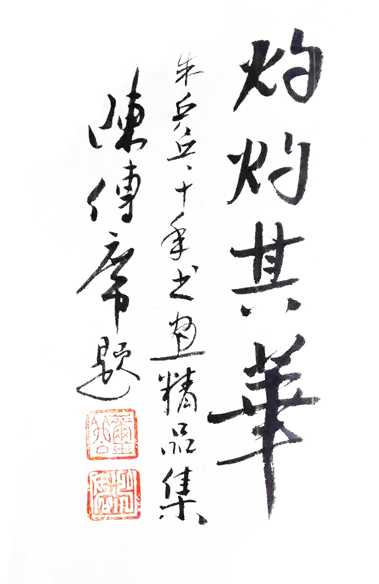 灼灼其華
朱兵兵十年书畫精品集
陳傳席題